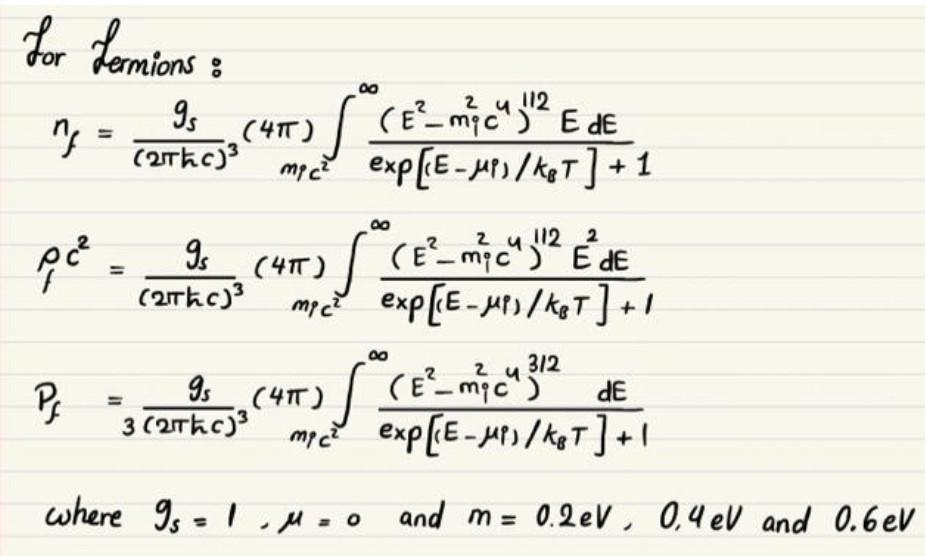 For Fermions :
n_f = g_s / (2πħc)^3 (4π) ∫_{m_i c^2}^{∞} (E^2 - m_i^2 c^4)^{1/2} E dE / exp[(E - μ_i) / k_B T] + 1
ρ_f c^2 = g_s / (2πħc)^3 (4π) ∫_{m_i c^2}^{∞} (E^2 - m_i^2 c^4)^{1/2} E^2 dE / exp[(E - μ_i) / k_B T] + 1
P_f = g_s / 3 (2πħc)^3 (4π) ∫_{m_i c^2}^{∞} (E^2 - m_i^2 c^4)^{3/2} dE / exp[(E - μ_i) / k_B T] + 1
where g_s = 1 , μ = 0 and m = 0.2eV , 0.4eV and 0.6eV